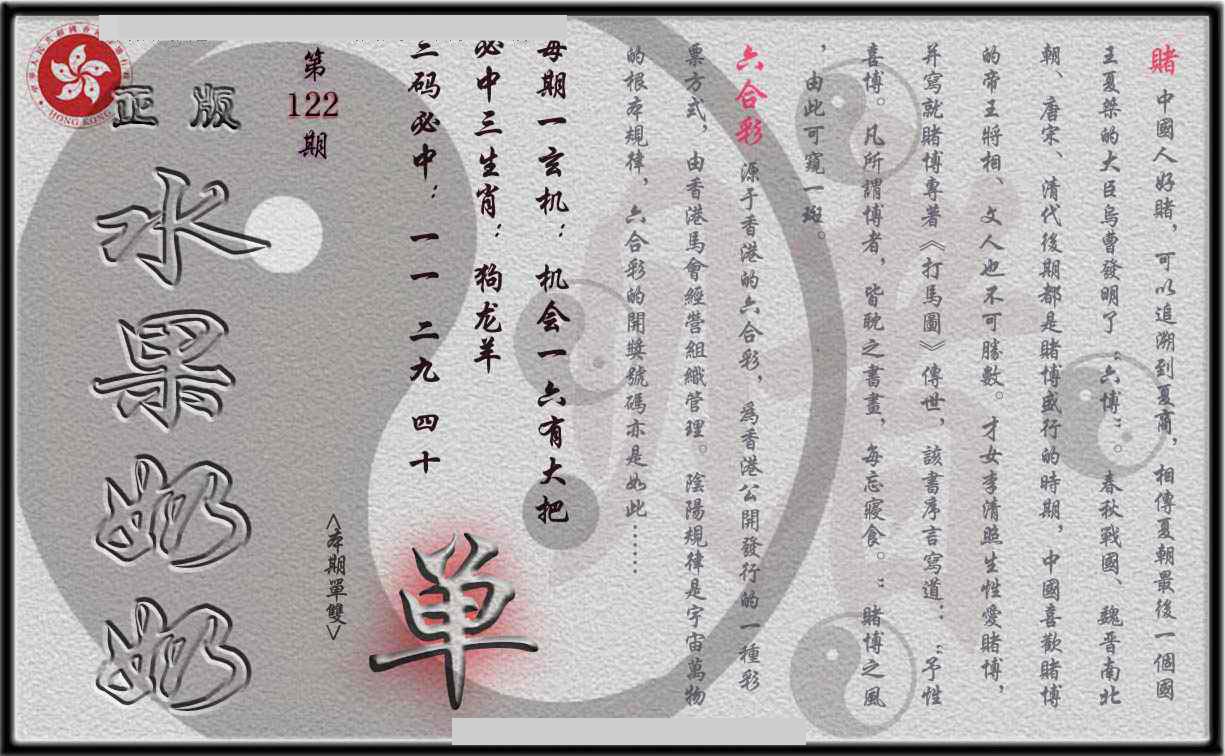 賭 中國人好賭，可以追溯到夏商，相傳夏朝最後一個國
王夏桀的大臣烏曹發明了“六博”。春秋戰國、魏晉南北
朝、唐宋、清代後期都是賭博盛行的時期，中國喜歡賭博
的帝王將相、文人也不可勝數。才女李清照生性愛賭博，
并寫就賭博專著《打馬圖》傳世，該書序言寫道：“予性
喜博。凡所謂博者，皆耽之書晝，每忘寢食。”賭博之風
，由此可窺一斑。
六合彩 源于香港的六合彩，為香港公開發行的一種彩
票方式，由香港馬會經營組織管理。陰陽規律是宇宙萬物
的根本規律，六合彩的開獎號碼亦是如此……
每期一玄机：机会一六有大把
必中三生肖：狗龙羊
三码必中：一一 二九 四十
单
第
122
期
<本期單雙>
正版
水果奶奶
HONG KONG